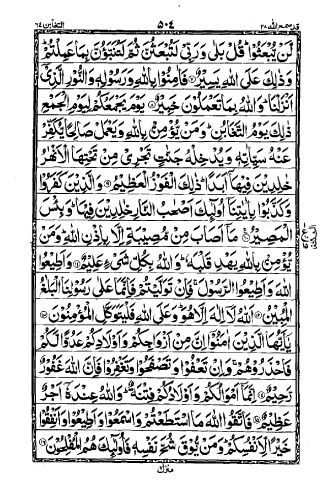 قد سمع الله ٢٨
٥٠٤
التغابن ٦٤
لَنْ يُبْعَثُوْا قُلْ بَلٰى وَرَبِّىْ لَتُبْعَثُنَّ ثُمَّ لَتُنَبَّؤُنَّ بِمَا عَمِلْتُمْ
وَذٰلِكَ عَلَى اللّٰهِ يَسِيْرٌ ۞ فَاٰمِنُوْا بِاللّٰهِ وَرَسُوْلِهٖ وَالنُّوْرِ الَّذِىْٓ
اَنْزَلْنَا وَاللّٰهُ بِمَا تَعْمَلُوْنَ خَبِيْرٌ ۞ يَوْمَ يَجْمَعُكُمْ لِيَوْمِ الْجَمْعِ
ذٰلِكَ يَوْمُ التَّغَابُنِ وَمَنْ يُّؤْمِنْ بِاللّٰهِ وَيَعْمَلْ صَالِحًا يُّكَفِّرْ
عَنْهُ سَيِّاٰتِهٖ وَيُدْخِلْهُ جَنّٰتٍ تَجْرِىْ مِنْ تَحْتِهَا الْاَنْهٰرُ
خٰلِدِيْنَ فِيْهَآ اَبَدًا ذٰلِكَ الْفَوْزُ الْعَظِيْمُ ۞ وَالَّذِيْنَ كَفَرُوْا
وَكَذَّبُوْا بِاٰيٰتِنَآ اُولٰٓئِكَ اَصْحٰبُ النَّارِ خٰلِدِيْنَ فِيْهَا وَبِئْسَ
الْمَصِيْرُ ۞ مَآ اَصَابَ مِنْ مُّصِيْبَةٍ اِلَّا بِاِذْنِ اللّٰهِ وَمَنْ
يُّؤْمِنْ بِاللّٰهِ يَهْدِ قَلْبَهٗ وَاللّٰهُ بِكُلِّ شَىْءٍ عَلِيْمٌ ۞ وَاَطِيْعُوا
اللّٰهَ وَاَطِيْعُوا الرَّسُوْلَ فَاِنْ تَوَلَّيْتُمْ فَاِنَّمَا عَلٰى رَسُوْلِنَا الْبَلٰغُ
الْمُبِيْنُ ۞ اَللّٰهُ لَآ اِلٰهَ اِلَّا هُوَ وَعَلَى اللّٰهِ فَلْيَتَوَكَّلِ الْمُؤْمِنُوْنَ ۞
يٰٓاَيُّهَا الَّذِيْنَ اٰمَنُوْٓا اِنَّ مِنْ اَزْوَاجِكُمْ وَاَوْلَادِكُمْ عَدُوًّا لَّكُمْ
فَاحْذَرُوْهُمْ وَاِنْ تَعْفُوْا وَتَصْفَحُوْا وَتَغْفِرُوْا فَاِنَّ اللّٰهَ غَفُوْرٌ
رَّحِيْمٌ ۞ اِنَّمَآ اَمْوَالُكُمْ وَاَوْلَادُكُمْ فِتْنَةٌ وَاللّٰهُ عِنْدَهٗٓ اَجْرٌ
عَظِيْمٌ ۞ فَاتَّقُوا اللّٰهَ مَا اسْتَطَعْتُمْ وَاسْمَعُوْا وَاَطِيْعُوْا وَاَنْفِقُوْا
خَيْرًا لِّاَنْفُسِكُمْ وَمَنْ يُّوْقَ شُحَّ نَفْسِهٖ فَاُولٰٓئِكَ هُمُ الْمُفْلِحُوْنَ ۞
منزل